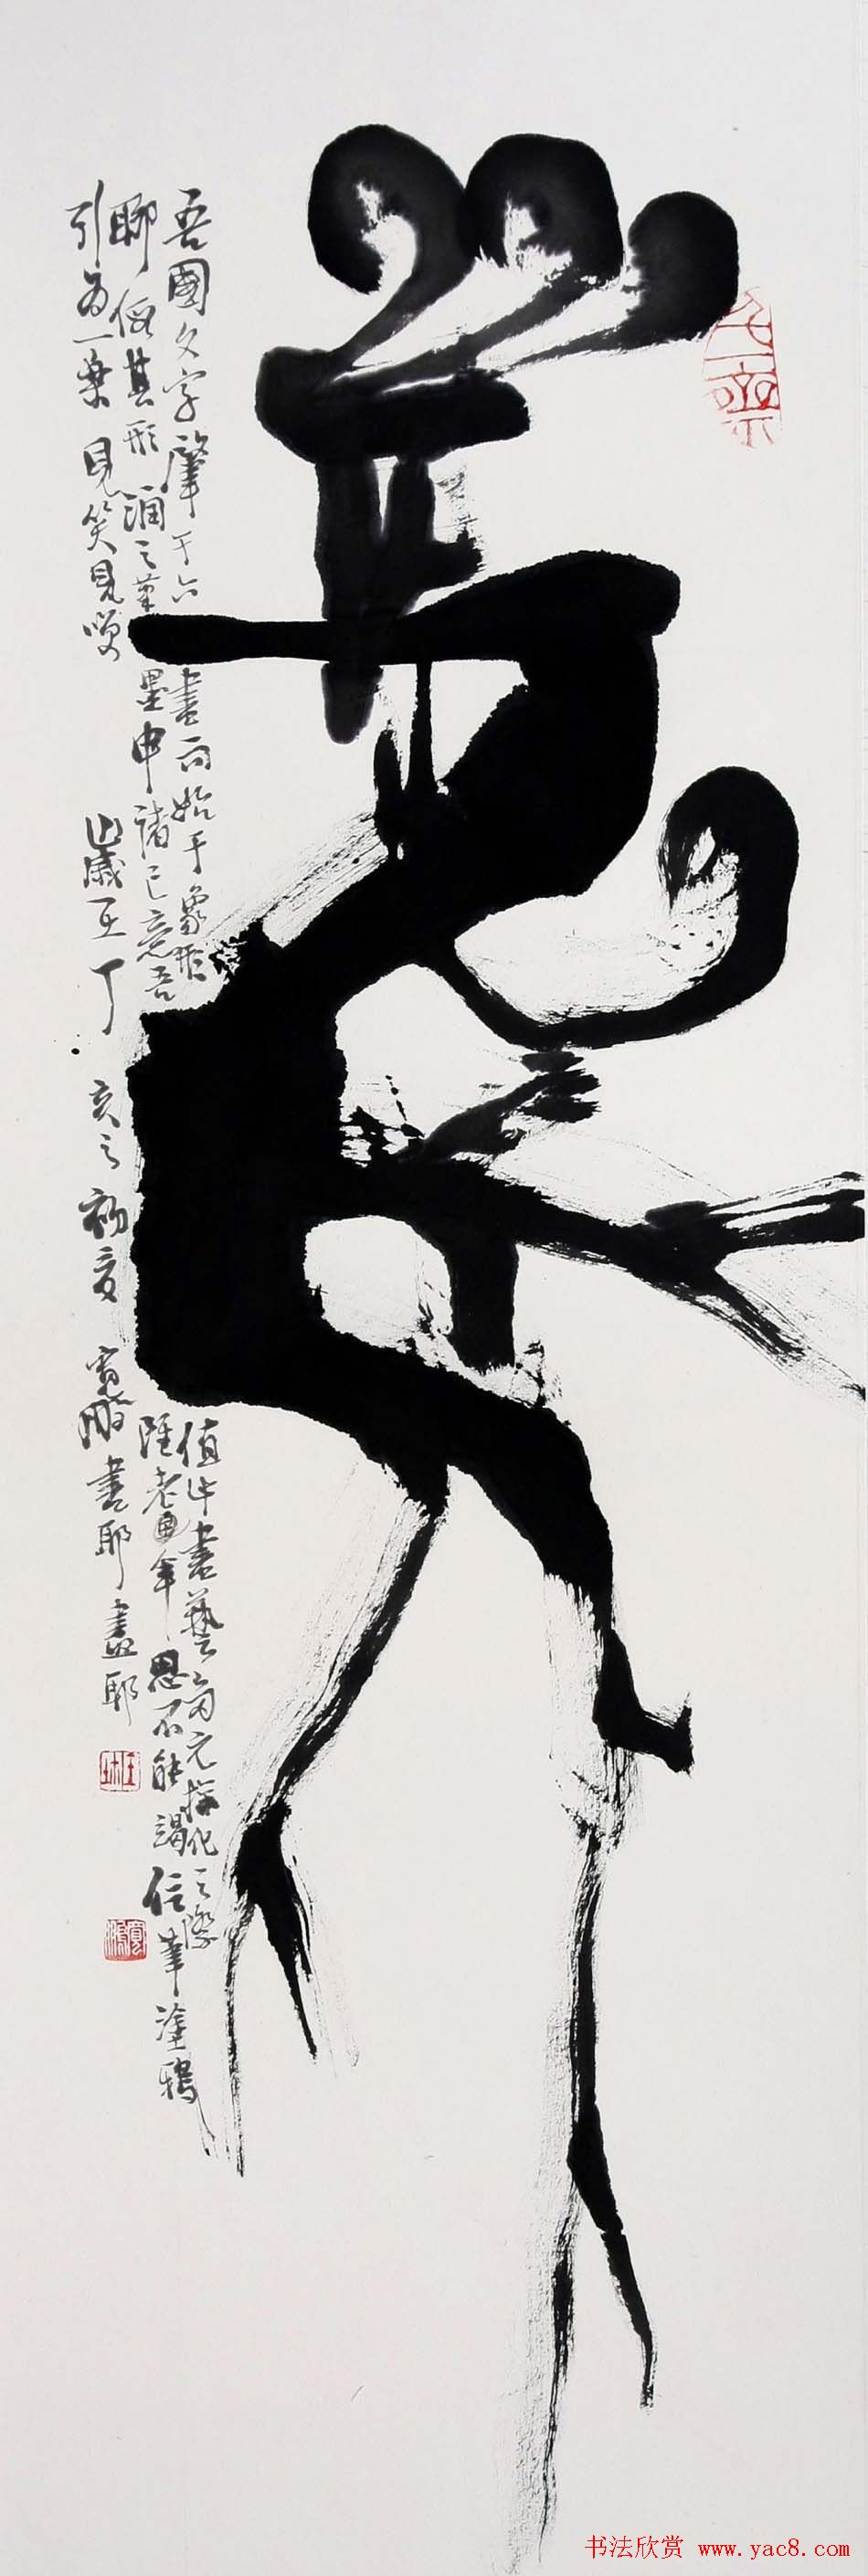 吾國文字肇于六書而始于象形值此書藝多元探化之際
聊假其形潤之筆墨申諸己意吾老年思不能竭信筆塗鴉
引為一樂見笑見笑歲至丁亥之初夏寬書耶畫耶
书法欣赏 www.yac8.com